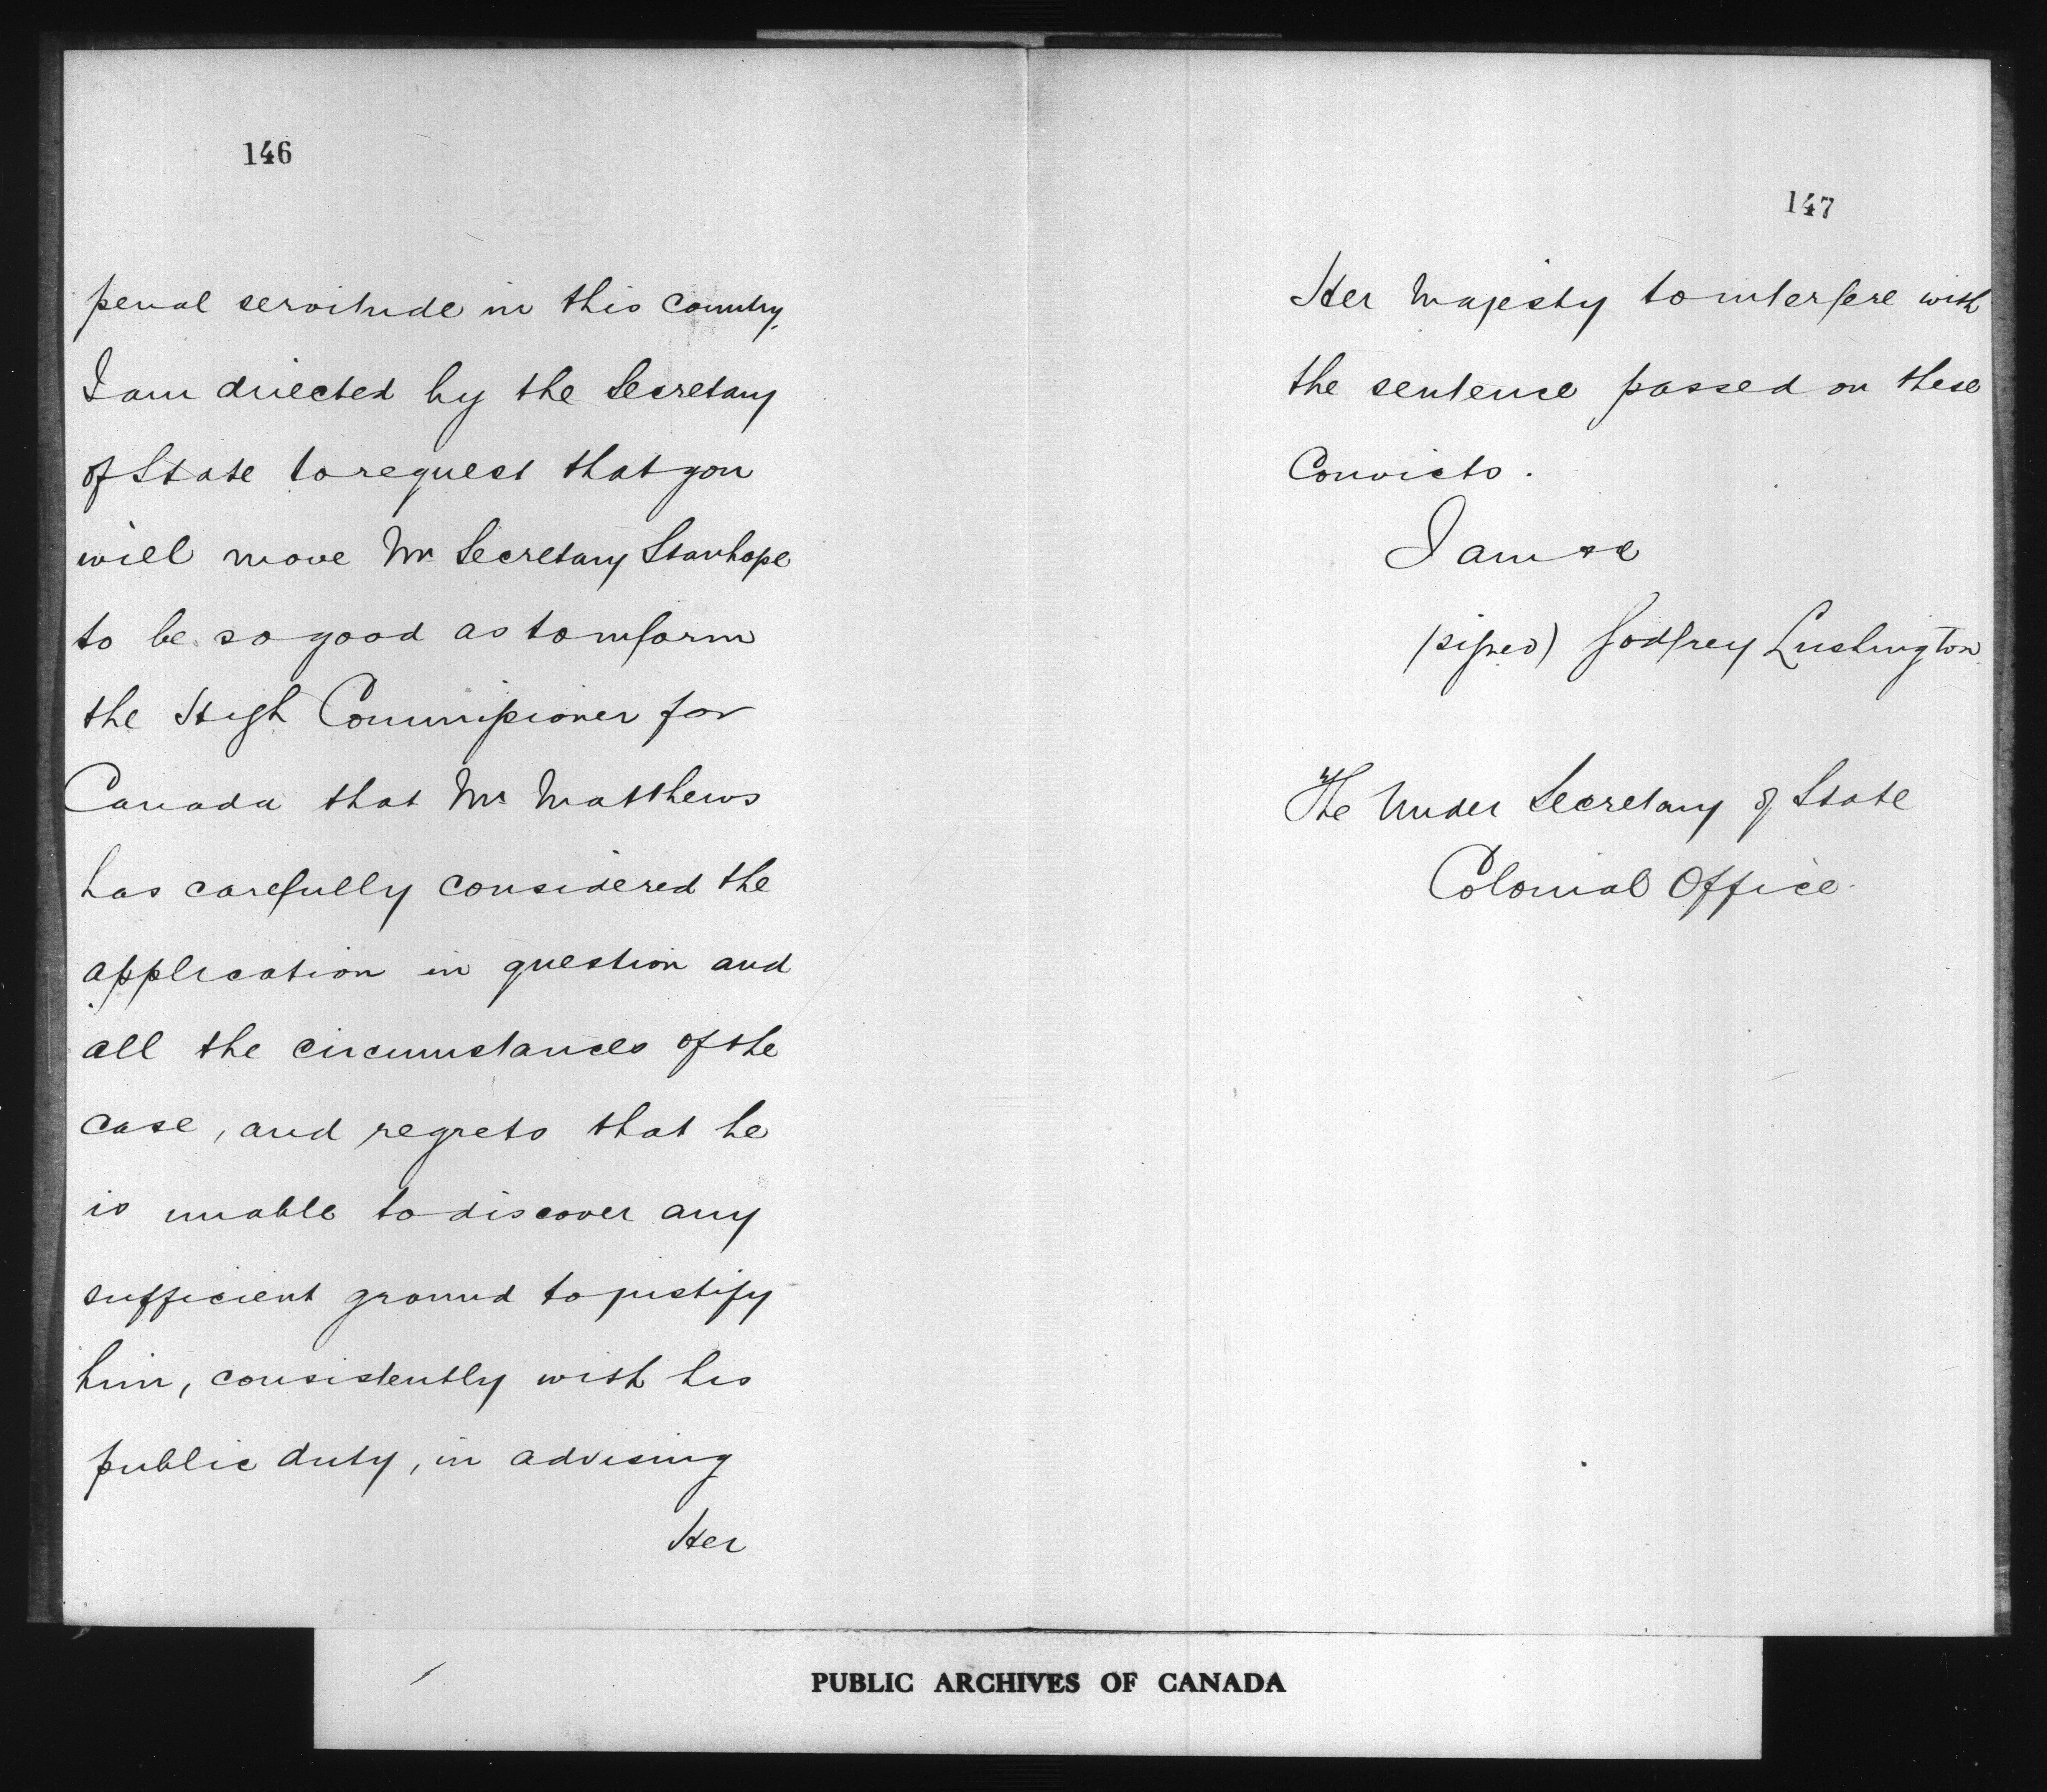 146
penal servitude in this country,
I am directed by the Secretary
of State to request that you
will move Mr Secretary Stanhope
to be so good as to inform
the High Commissioner for
Canada that Mr Matthews
has carefully considered the
application in question and
all the circumstances of the
case, and regrets that he
is unable to discover any
sufficient ground to justify
him, consistently with his
public duty, in advising
Her
147
Her Majesty to interfere with
the sentence passed on these
Convicts.
I am &c
(signed) Godfrey Lushington
The Under Secretary of State
Colonial Office.
PUBLIC ARCHIVES OF CANADA